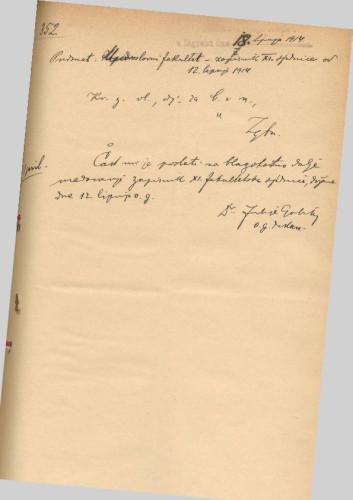 352.
18. lipnja 1914
Predmet: fakultet – zapisnik XI. sjednice od
12. lipnja 1914
Kr. z. vl., odj. za b. i n.,
Zgb.
Čast mi je poslati na blagohotno dalje
uredovanje zapisnik XI. fakultetske sjednice, držane
dne 12. lipnja o. g.
Dr.
o. g. dekan.